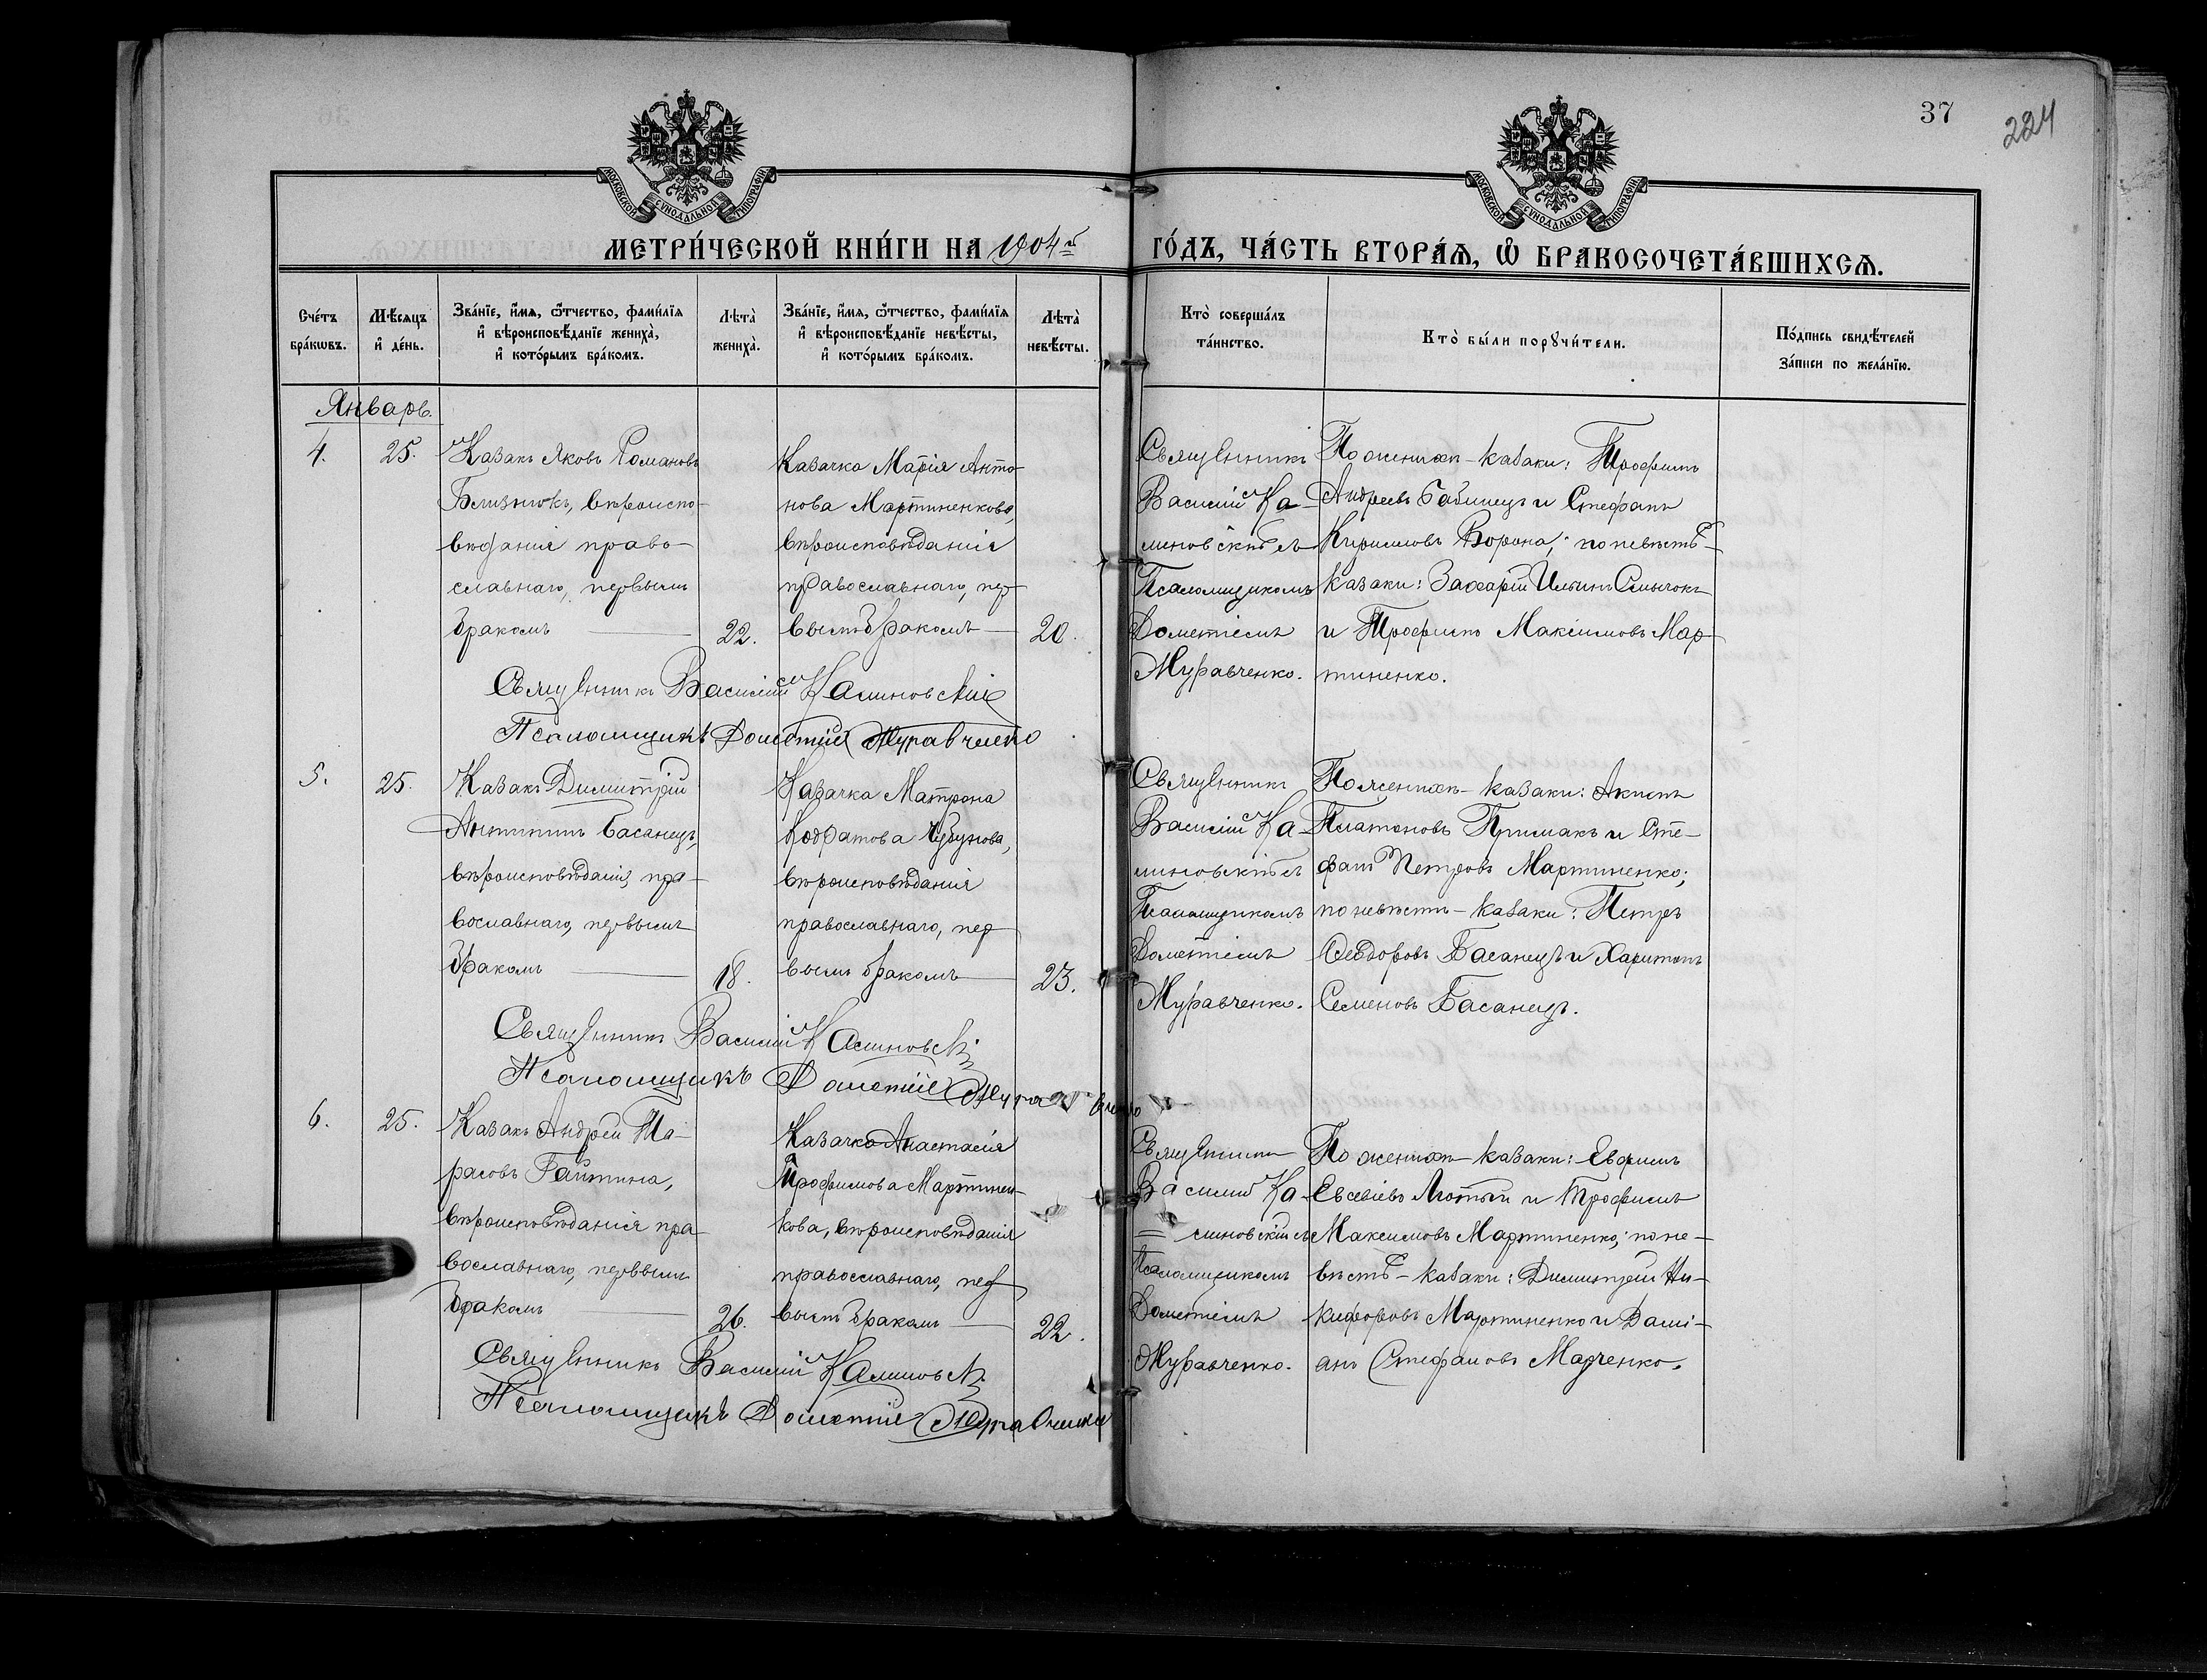 37
224
МОСКОВСКОЙ СѴНОДАЛЬНОЙ ТИПОГРАФІИ
МОСКОВСКОЙ СѴНОДАЛЬНОЙ ТИПОГРАФІИ
МЕТРИ́ЧЕСКОЙ КНИ́ГИ НА 1904й
ГО́ДЪ, ЧА́СТЬ ВТОРА́Ѧ, Ѽ БРАКОСОЧЕТА́ВШИХСѦ.
Сче́тъ
бра́кѡвъ.
Мѣ́сяцъ
и҆ де́нь.
Зва́нїе, и҆́мѧ, ѻ҆́тчество, фами́лїѧ
и҆ вѣроисповѣ́данїе жениха̀,
и҆ кото́рымъ бра́комъ.
Лѣта̀
жениха̀.
Зва́нїе, и҆́мѧ, ѻ҆́тчество, фами́лїѧ
и҆ вѣроисповѣ́данїе невѣ́сты,
и҆ кото́рымъ бра́комъ.
Лѣта̀
невѣ́сты.
Кто̀ соверша́лъ
та́инство.
Кто̀ бы́ли порꙋчи́тели.
По́дпись свидѣ́телей
За́писи по жела́нїю.
Январь.
4.
25.
Казакъ Яковъ Романовъ
Близнюкъ, вѣроиспо-
вѣданія право-
славнаго, первымъ
бракомъ
22.
Казачка Марія Анто-
нова Мартиненкова,
вѣроисповѣданія
православнаго, пер-
вымъ бракомъ
20.
Священникъ
Василій Ка-
линовскій съ
Псаломщикомъ
Дометіемъ
Муравченко.
По женихѣ - казаки: Трофимъ
Андреевъ Бабинецъ и Стефанъ
Кирилловъ Ворона; по невѣстѣ -
казаки: Захарій Ильинъ Смычокъ
и Трофимъ Максимовъ Мар-
тиненко.
Священникъ Василій Калиновскій
Псаломщикъ Дометій Муравченко
5.
25.
Казакъ Димитрій
Антиповъ Басанецъ,
вѣроисповѣданія пра-
вославнаго, первымъ
бракомъ
18.
Казачка Матрона
Кодратова
вѣроисповѣданія
православнаго, пер-
вымъ бракомъ
23.
Священникъ
Василій Ка-
линовскій съ
Псаломщикомъ
Дометіемъ
Муравченко.
По женихѣ - казаки: Акимъ
Платоновъ Примакъ и Сте-
фанъ Петровъ Мартиненко;
по невѣстѣ - казаки: Петръ
Ѳеодоровъ Басанецъ и Харитонъ
Семеновъ Басанецъ.
Священникъ Василій Калиновскій
Псаломщикъ Дометій Муравченко
6.
25.
Казакъ Андрей Та-
расовъ Гайтина,
вѣроисповѣданія пра-
вославнаго, первымъ
бракомъ
26.
Казачка Анастасія
Трофимова Мартинен-
кова, вѣроисповѣданія
православнаго, пер-
вымъ бракомъ
22.
Священникъ
Василій Ка-
линовскій съ
Псаломщикомъ
Дометіемъ
Муравченко.
По женихѣ - казаки: Евфимъ
Евсевіевъ Лютый и Трофимъ
Максимовъ Мартиненко; по не-
вѣстѣ - казаки: Димитрій Ни-
кифоровъ Мартиненко и Дамі-
анъ Стефановъ Марченко.
Священникъ Василій Калиновскій
Псаломщикъ Дометій Муравченко